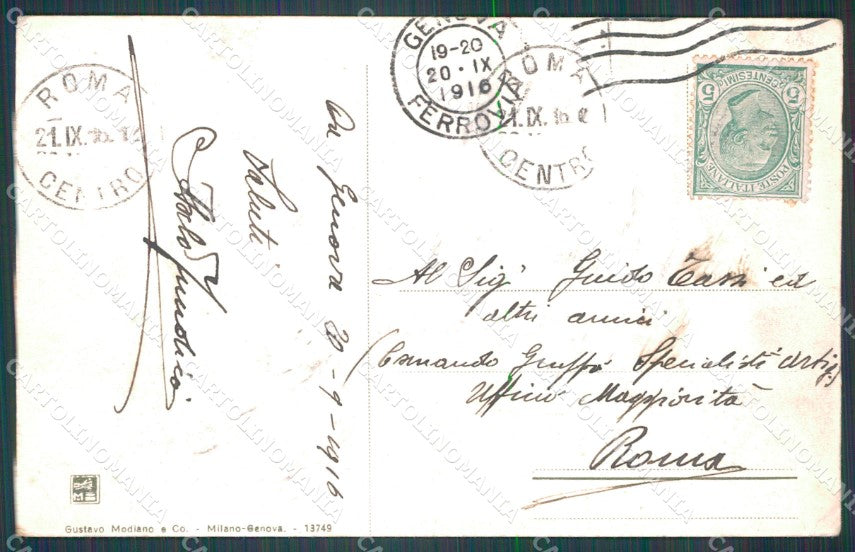 GENOVA
19-20
20·IX
1916
FERROVIA
ROMA
21.IX.16
CENTRO
ROMA
21.IX.16
CENTRO
5 CENTESIMI 5
POSTE ITALIANE
Da Genova 20-9-1916
Saluti
Al Sigr Guido Tassi ed
altri amici
(Comando Gruppo Specialisti Artigl)
Ufficio Maggiorità
Roma
Gustavo Modiano e Co. - Milano-Genova. - 13749
CARTOLINOMANIA